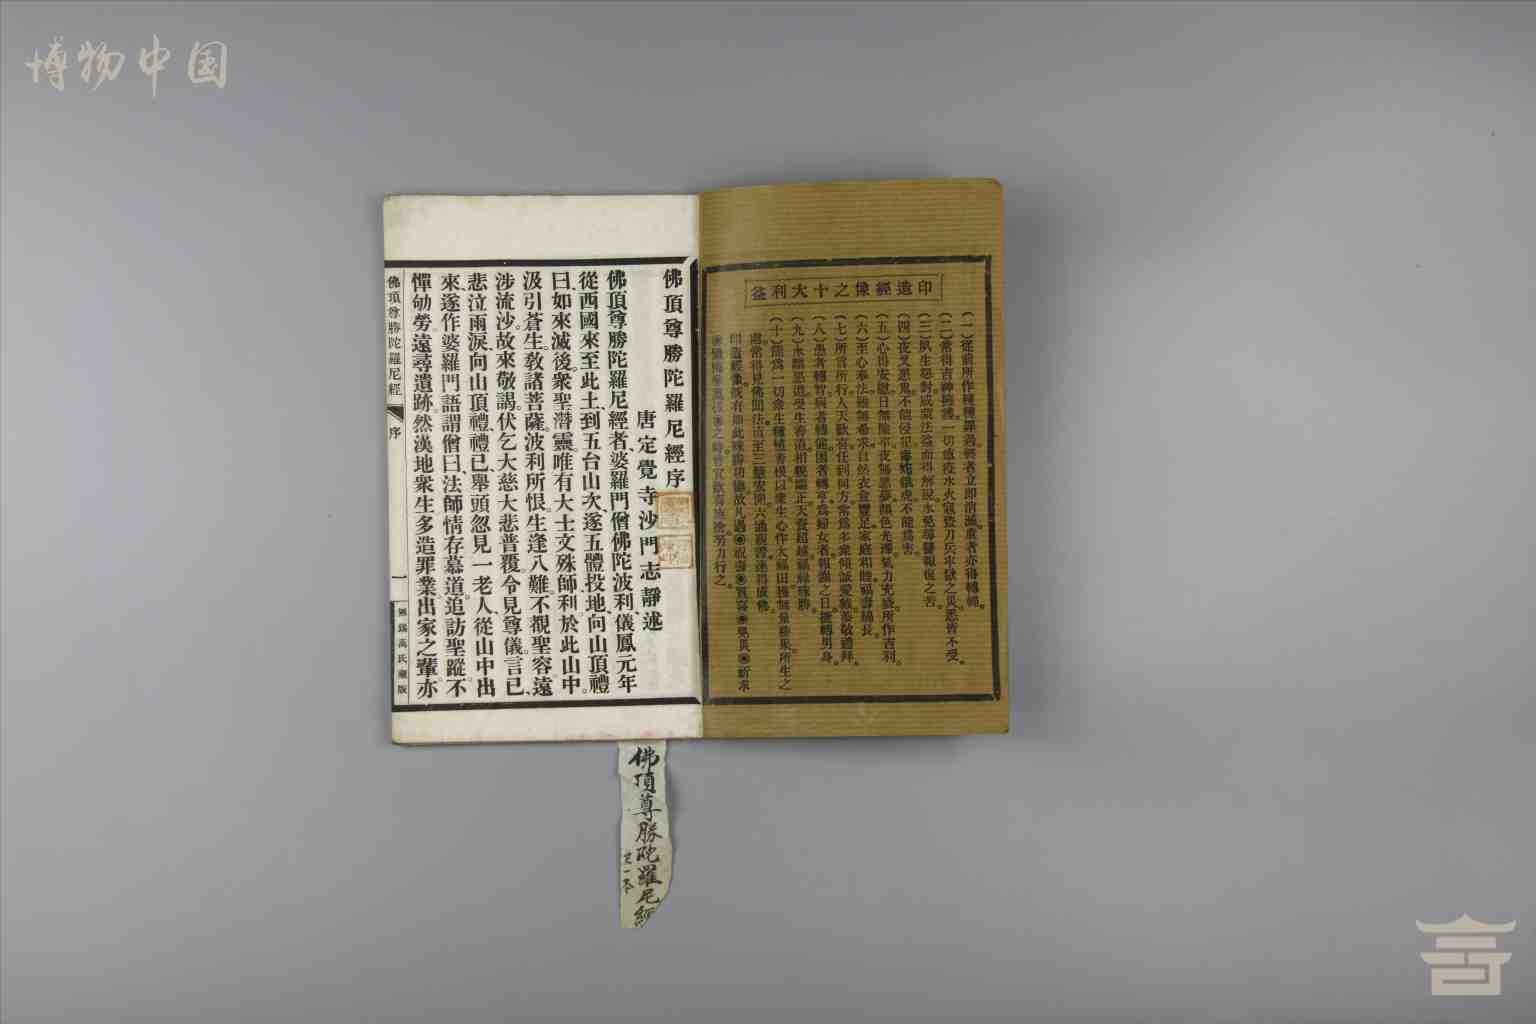 博物中国
印造經像之十大利益
(一)從前所作種種罪過。輕者立即消滅。重者亦得轉輕。
(二)常得吉神擁護。一切瘟疫水火寇盜刀兵牢獄之災。悉皆不受。
(三)夙生怨對。咸蒙法益而得解脫。永免尋讐報復之苦。
(四)夜叉惡鬼。不能侵犯。毒蛇餓虎。不能爲害。
(五)心得安慰。日無險事。夜無惡夢。顏色光澤。氣力充盛。所作吉利。
(六)至心奉法。雖無希求。自然衣食豐足。家庭和睦。福壽綿長。
(七)所言所行。人天歡喜。任到何方。常爲多衆傾誠愛戴。恭敬禮拜。
(八)愚者轉智。病者轉健。困者轉亨。爲婦女者。報謝之日。捷轉男身。
(九)永離惡道。受生善道。相貌端正。天資超越。福祿殊勝。
(十)能爲一切衆生種植善根。以衆生心作大福田。獲無量勝果。所生之
處。常得見佛聞法。直至三慧宏開。六通親證。速得成佛。
印造經像。既有如此殊勝功德。故凡遇◉祝壽◉賀喜◉免災◉祈求
之時。皆宜歡喜施捨。努力行之。
佛頂尊勝陀羅尼經序
唐定覺寺沙門志靜述
佛頂尊勝陀羅尼經者、婆羅門僧佛陀波利、儀鳳元年
從西國來至此土、到五台山次、遂五體投地、向山頂禮
曰、如來滅後、衆聖潛靈。唯有大士文殊師利、於此山中。
汲引蒼生。敎諸菩薩。波利所恨。生逢八難。不覩聖容。遠
涉流沙。故來敬謁。伏乞大慈大悲普覆。令見尊儀。言已、
悲泣雨淚、向山頂禮、禮已、舉頭忽見一老人、從山中出
來、遂作婆羅門語謂僧曰、法師情存慕道。追訪聖蹤。不
憚劬勞。遠尋遺跡。然漢地衆生多造罪業。出家之輩亦
佛頂尊勝陀羅尼經
序
一
無錫萬氏藏版
佛頂尊勝陀羅尼經